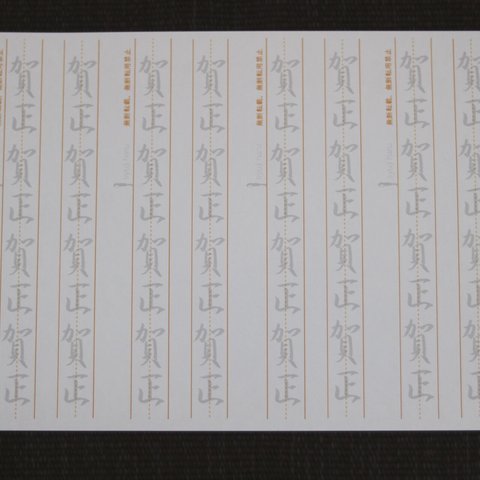 賀正賀正賀正賀正
賀正賀正賀正賀正
無断転載、無断転用禁止
賀正賀正賀正賀正
賀正賀正賀正賀正
無断転載、無断転用禁止
賀正賀正賀正賀正
賀正賀正賀正賀正
無断転載、無断転用禁止
賀正賀正賀正賀正
賀正賀正賀正賀正